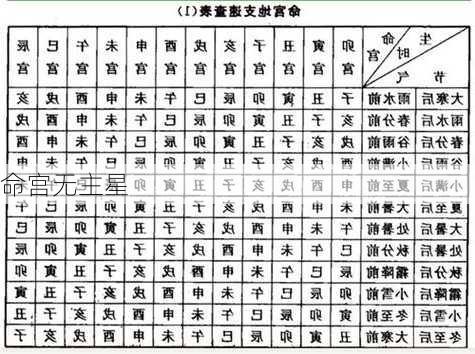 命宫地支速查表(1)
生时 命宫 节气 卯宫 寅宫 丑宫 子宫 亥宫 戌宫 酉宫 申宫 未宫 午宫 巳宫 辰宫
大寒后 雨水前 子 丑 寅 卯 辰 巳 午 未 申 酉 戌 亥
雨水后 春分前 亥 子 丑 寅 卯 辰 巳 午 未 申 酉 戌
春分后 谷雨前 戌 亥 子 丑 寅 卯 辰 巳 午 未 申 酉
谷雨后 小满前 酉 戌 亥 子 丑 寅 卯 辰 巳 午 未 申
小满后 夏至前 申 酉 戌 亥 子 丑 寅 卯
命宫无主星
夏至后 大暑前 未 申 酉 戌 亥 子 丑 寅 卯 辰 巳 午
大暑后 处暑前 午 未 申 酉 戌 亥 子 丑 寅 卯 辰 巳
处暑后 秋分前 巳 午 未 申 酉 戌 亥 子 丑 寅 卯 辰
秋分后 霜降前 辰 巳 午 未 申 酉 戌 亥 子 丑 寅 卯
霜降后 小雪前 卯 辰 巳 午 未 申 酉 戌 亥 子 丑 寅
小雪后 冬至前 寅 卯 辰 巳 午 未 申 酉 戌 亥 子 丑
冬至后 大寒前 丑 寅 卯 辰 巳 午 未 申 酉 戌 亥 子